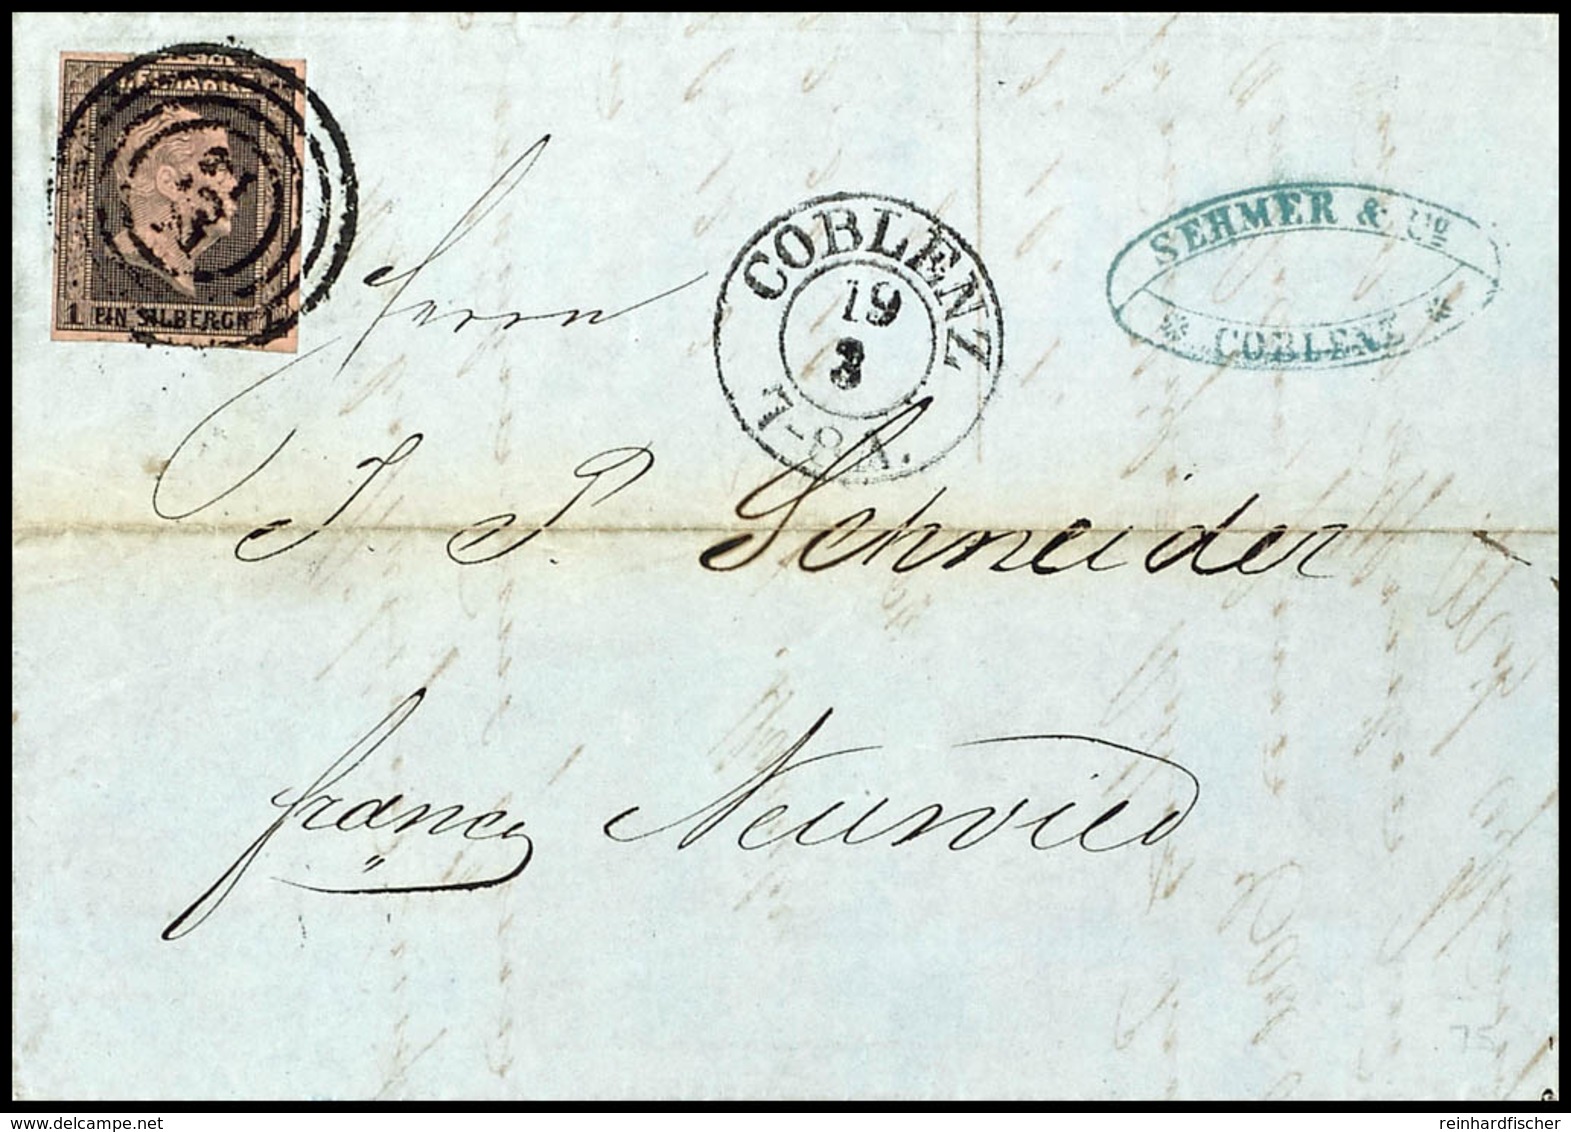 FREIMARKE
1 EIN SILBERGR 1
COBLENZ
19
3
7-8 A.
SEHMER & Co
* COBLENZ *
Herrn
J. P. Schneider
franco Neuwied
75
reinhardfischer